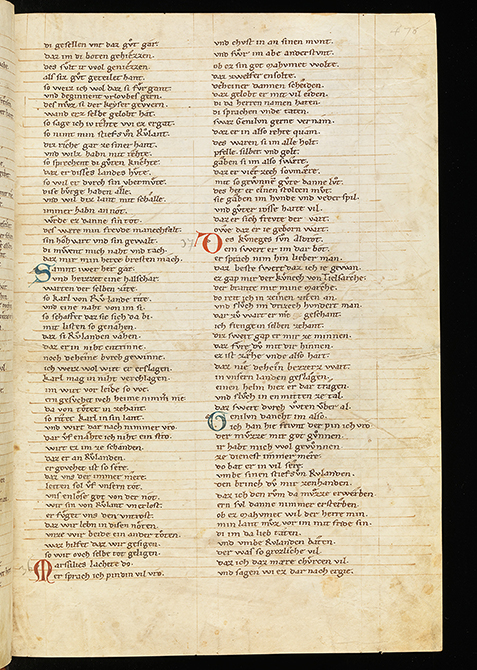 di gesellen vnt daz gůt gar.
daz im di boten gehiezzen.
des sult ir wol geniezzen.
als iz gůt geteilet hant.
so weiz ich wol daz si fur gant.
und beginnent urloubes gern.
des můz si der keiser gewern.
wand erz selbe gelobt hat.
so sage ich iv rehte wi ez ergat.
so nimt min stiefsun Růlant.
diz riche gar ze siner hant.
und wilz habn mit rehte.
so sprechent di gůten knehte.
daz er disses landes hůte.
so wil er durch sin ubermůte.
dise burge haben alle.
und wil diz lant mit schalle.
immer habn an not.
wede er danne sin tot.
des ware min freude manecfalt.
sin hohvart und sin gewalt.
di můwent mich naht und tach.
daz mir min herze brechen mach.
Samnt iwer her gar.
und heizzet eine halschar.
warten der selben rite.
so karl von Růlande rite.
und eine naht von im si.
so schaffet daz sie sich da bi.
mit listen so genahen.
daz si Růlanden vahen.
daz er in niht entrinne.
noch deheine burch gewinne.
ich weiz wol wirt er erslagen.
karl mag in niht verchlagen.
im wirt vor leide so we.
ern gesuchet uch heime nimmer me
da von tůtet in zehant.
so růtet karl in sin lant.
und wirt dar nach nimmer vro.
dar uf enahte ich niht ein stro.
wirt ez im ze schanden.
daz er an Růlanden.
er gouchet ist so sere.
daz uns der immer mere.
leiten sol uf unsern tot.
uns enlose got von der not.
wir sin von Růlant unerlost.
er fuget uns den untrost.
daz wir lebn in disen noten.
unze wir beide ein ander toten.
waz hilfet daz wir gesigen.
so wir ouch selbe tot geligen.
Marsilies lachete do.
er sprach ich pin din vil vro.
f 78
und chust in an sinen munt.
und swůr im abe anderstunt.
ob er sin got mahumet wolte.
daz zwelfer ensolte.
deheiner dannen scheiden.
daz gelobt er mit vil eiden.
di da herren namen haten.
di sprachen unde taten.
swaz Genilun gerne vernam.
daz er in also rehte quam.
des waren si im alle holt.
pfelle silber und golt.
gaben si im also swere.
daz er vier zech soumære.
mit so gewunne gůte danne lut.
des het er einen stolzen můt.
sie gaben im hunde und veder spil.
und gůter rosse harte vil.
daz er sich freut der vart.
owe daz er ie geborn wart.
37
Des kuneges sun albrot.
ein swert er im dar bot.
er sprach nim hin lieber man.
daz beste swert daz ich ie gewan.
ez gap mir der kunech von Teissarche.
der brance mit mine marche.
do reit ich in einen riesen an.
und sluch im drizech hundert man.
daz zu wart er mir geschant.
ich stengein selben zehant.
diz swert gap er mir ze minnen.
daz fure du mit dir hinnen.
er ist zæhe unde also hart.
daz nie dehein bezzer wart.
in unsern landen geslagen.
einen helm hiez er dar tragen.
und sluch in enmitten ze tal.
daz swert durch uzten uber al.
Genilun dancht im also.
ich han hie friunt der pin ich vro
der můzze mit got gunnen.
ir habt mich wol gewunnen
ze dienest immer mere.
do bat er in vil sere.
umbe sinen stiefsun Růlanden.
den brinch du mir zenhanden.
daz ich den rům da můzze erwerben
ern sul danne nimmer ersterben
ob ez mahumet wil der herre min.
min lant můz vor im mit fride sin.
di im da lieb taten.
und umbe Růlanden baten.
der was so grozliche vil.
daz ich daz mære churcen vil.
und sagen wi ez dar nach ergie.